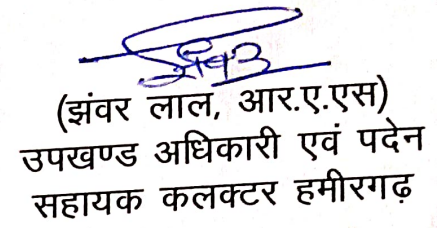 (झंवर लाल, आर.ए.एस)
उपखण्ड अधिकारी एवं पदेन
सहायक कलक्टर हमीरगढ़